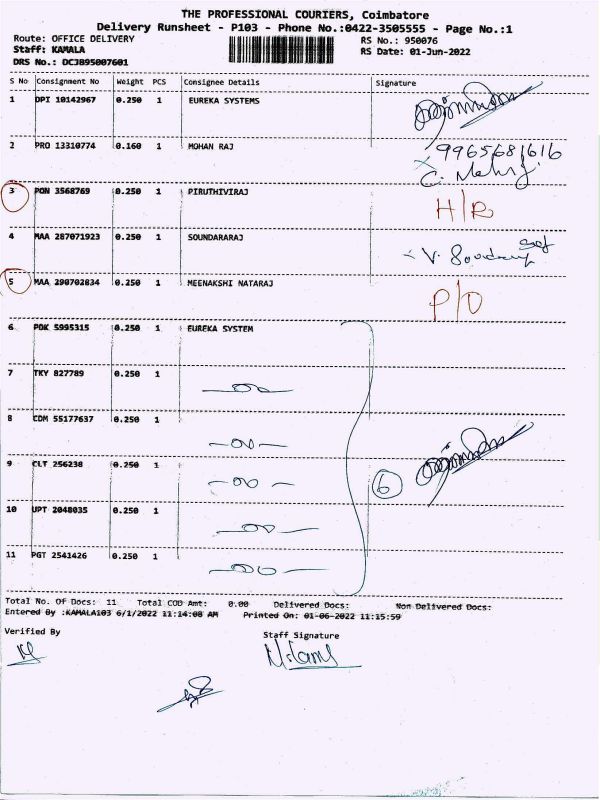 THE PROFESSIONAL COURIERS, Coimbatore
Delivery Runsheet - P103 - Phone No.:0422-3505555 - Page No.:1
Route: OFFICE DELIVERY RS No.: 950076
Staff: KAMALA RS Date: 01-Jun-2022
DRS No.: DCJB95007601
S No Consignment No Weight PCS Consignee Details Signature
1 DPI 10142967 0.250 1 EUREKA SYSTEMS
2 PRO 13310774 0.160 1 MOHAN RAJ 9965681616
3 PON 3568769 0.250 1 PIRUTHIVIRAJ H/R
4 MAA 287071923 0.250 1 SOUNDARARAJ
5 MAA 290702834 0.250 1 MEENAKSHI NATARAJ P/O
6 POK 5995315 0.250 1 EUREKA SYSTEM
7 TKY 827789 0.250 1
8 CDM 55177637 0.250 1
9 CLT 256238 0.250 1 6
10 UPT 2048035 0.250 1
11 PGT 2541426 0.250 1
Total No. Of Docs: 11 Total COD Amt: 0.00 Delivered Docs: Non Delivered Docs:
Entered By :KAMALA103 6/1/2022 11:14:08 AM Printed On: 01-06-2022 11:15:59
Verified By Staff Signature